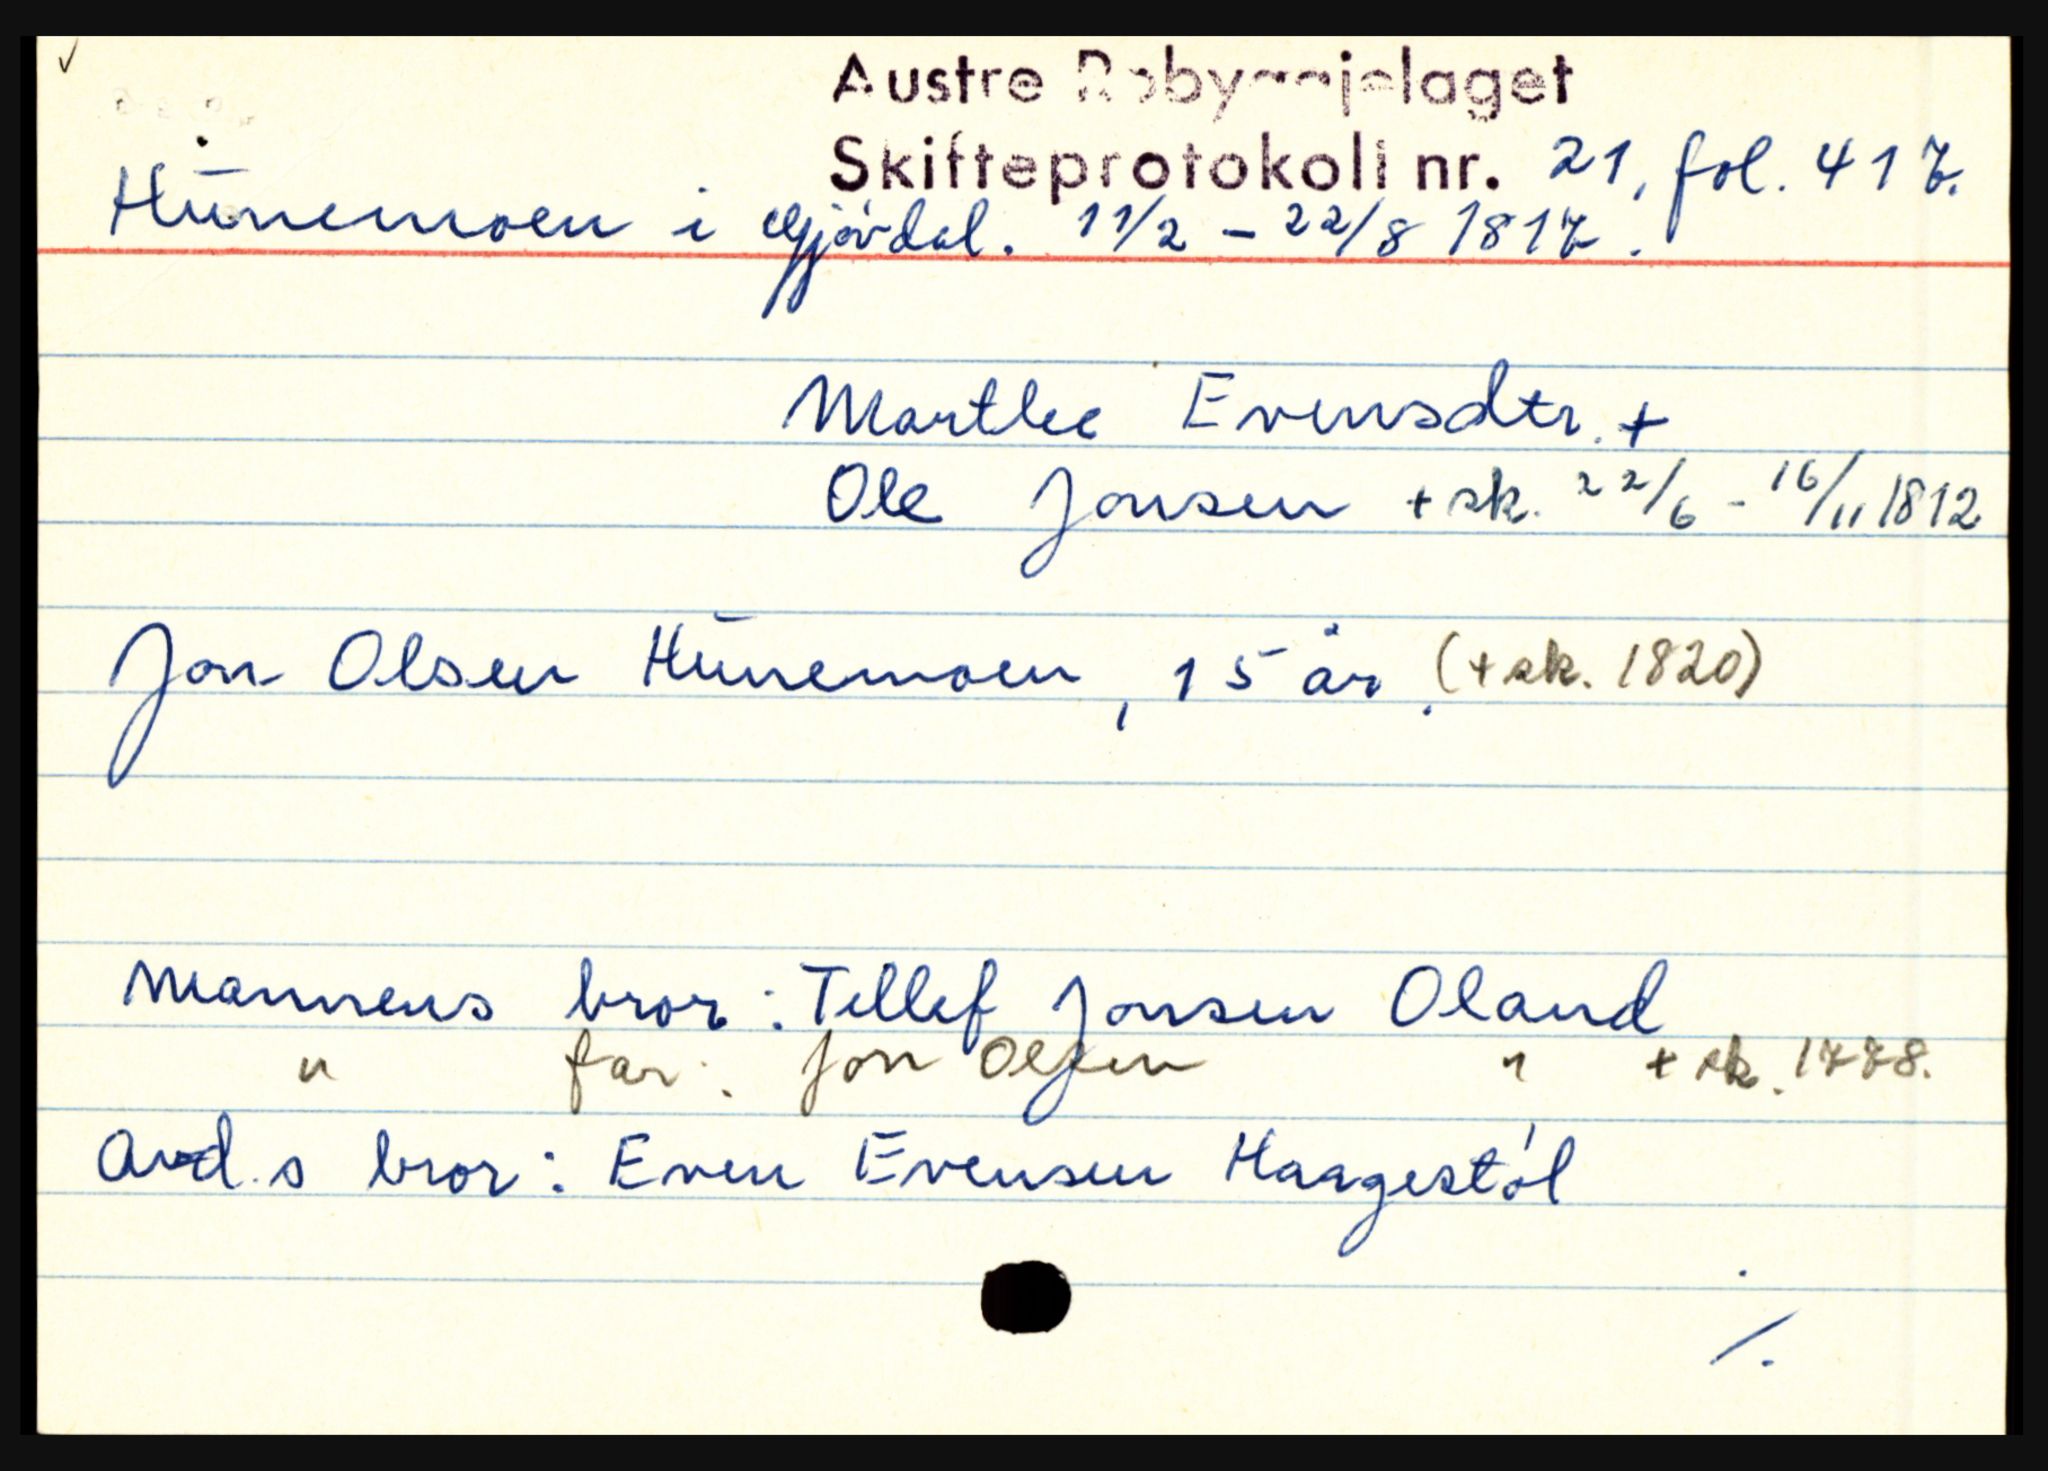 Austre Robyggjelaget
Skifteprotokoll nr. 21, fol. 417.
Hünemoen i Gjövdal. 11/2 - 22/8 1817.
Marthe Evensdtr. +
Ole Jonsen + sk. 22/6 - 16/11 1812
Jon Olsen Hünemoen, 15 år. (+ sk. 1820)
Mannens bror: Tellef Jonsen Oland
" far: Jon Olsen " + sk. 1778.
Avd.s bror: Even Evensen Haugestöl
/.